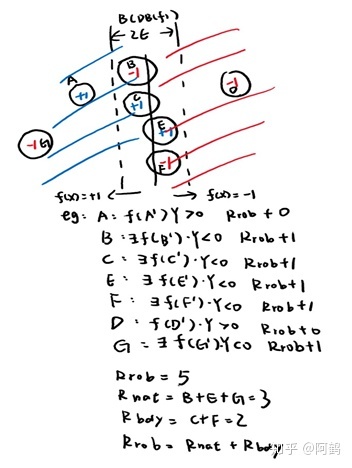 B(DB(f),
2ε
A
+1
B
-1
C
+1
-1
D
-1 G
E
+1
F
-1
f(x)=+1
f(x)=-1
eg: A: f(A')Y>0 Rrob+0
B: ∃f(B')·Y<0 Rrob+1
C: ∃f(C')·Y<0 Rrob+1
E: ∃f(E')·Y<0 Rrob+1
F: ∃f(F')·Y<0 Rrob+1
D: f(D')·Y>0 Rrob+0
G: ∃f(G')Y<0 Rrob+1
Rrob = 5
Rnat = B+E+G=3
Rbody = C+F=2
Rrob = Rnat + Rbody
知乎 @阿鹤